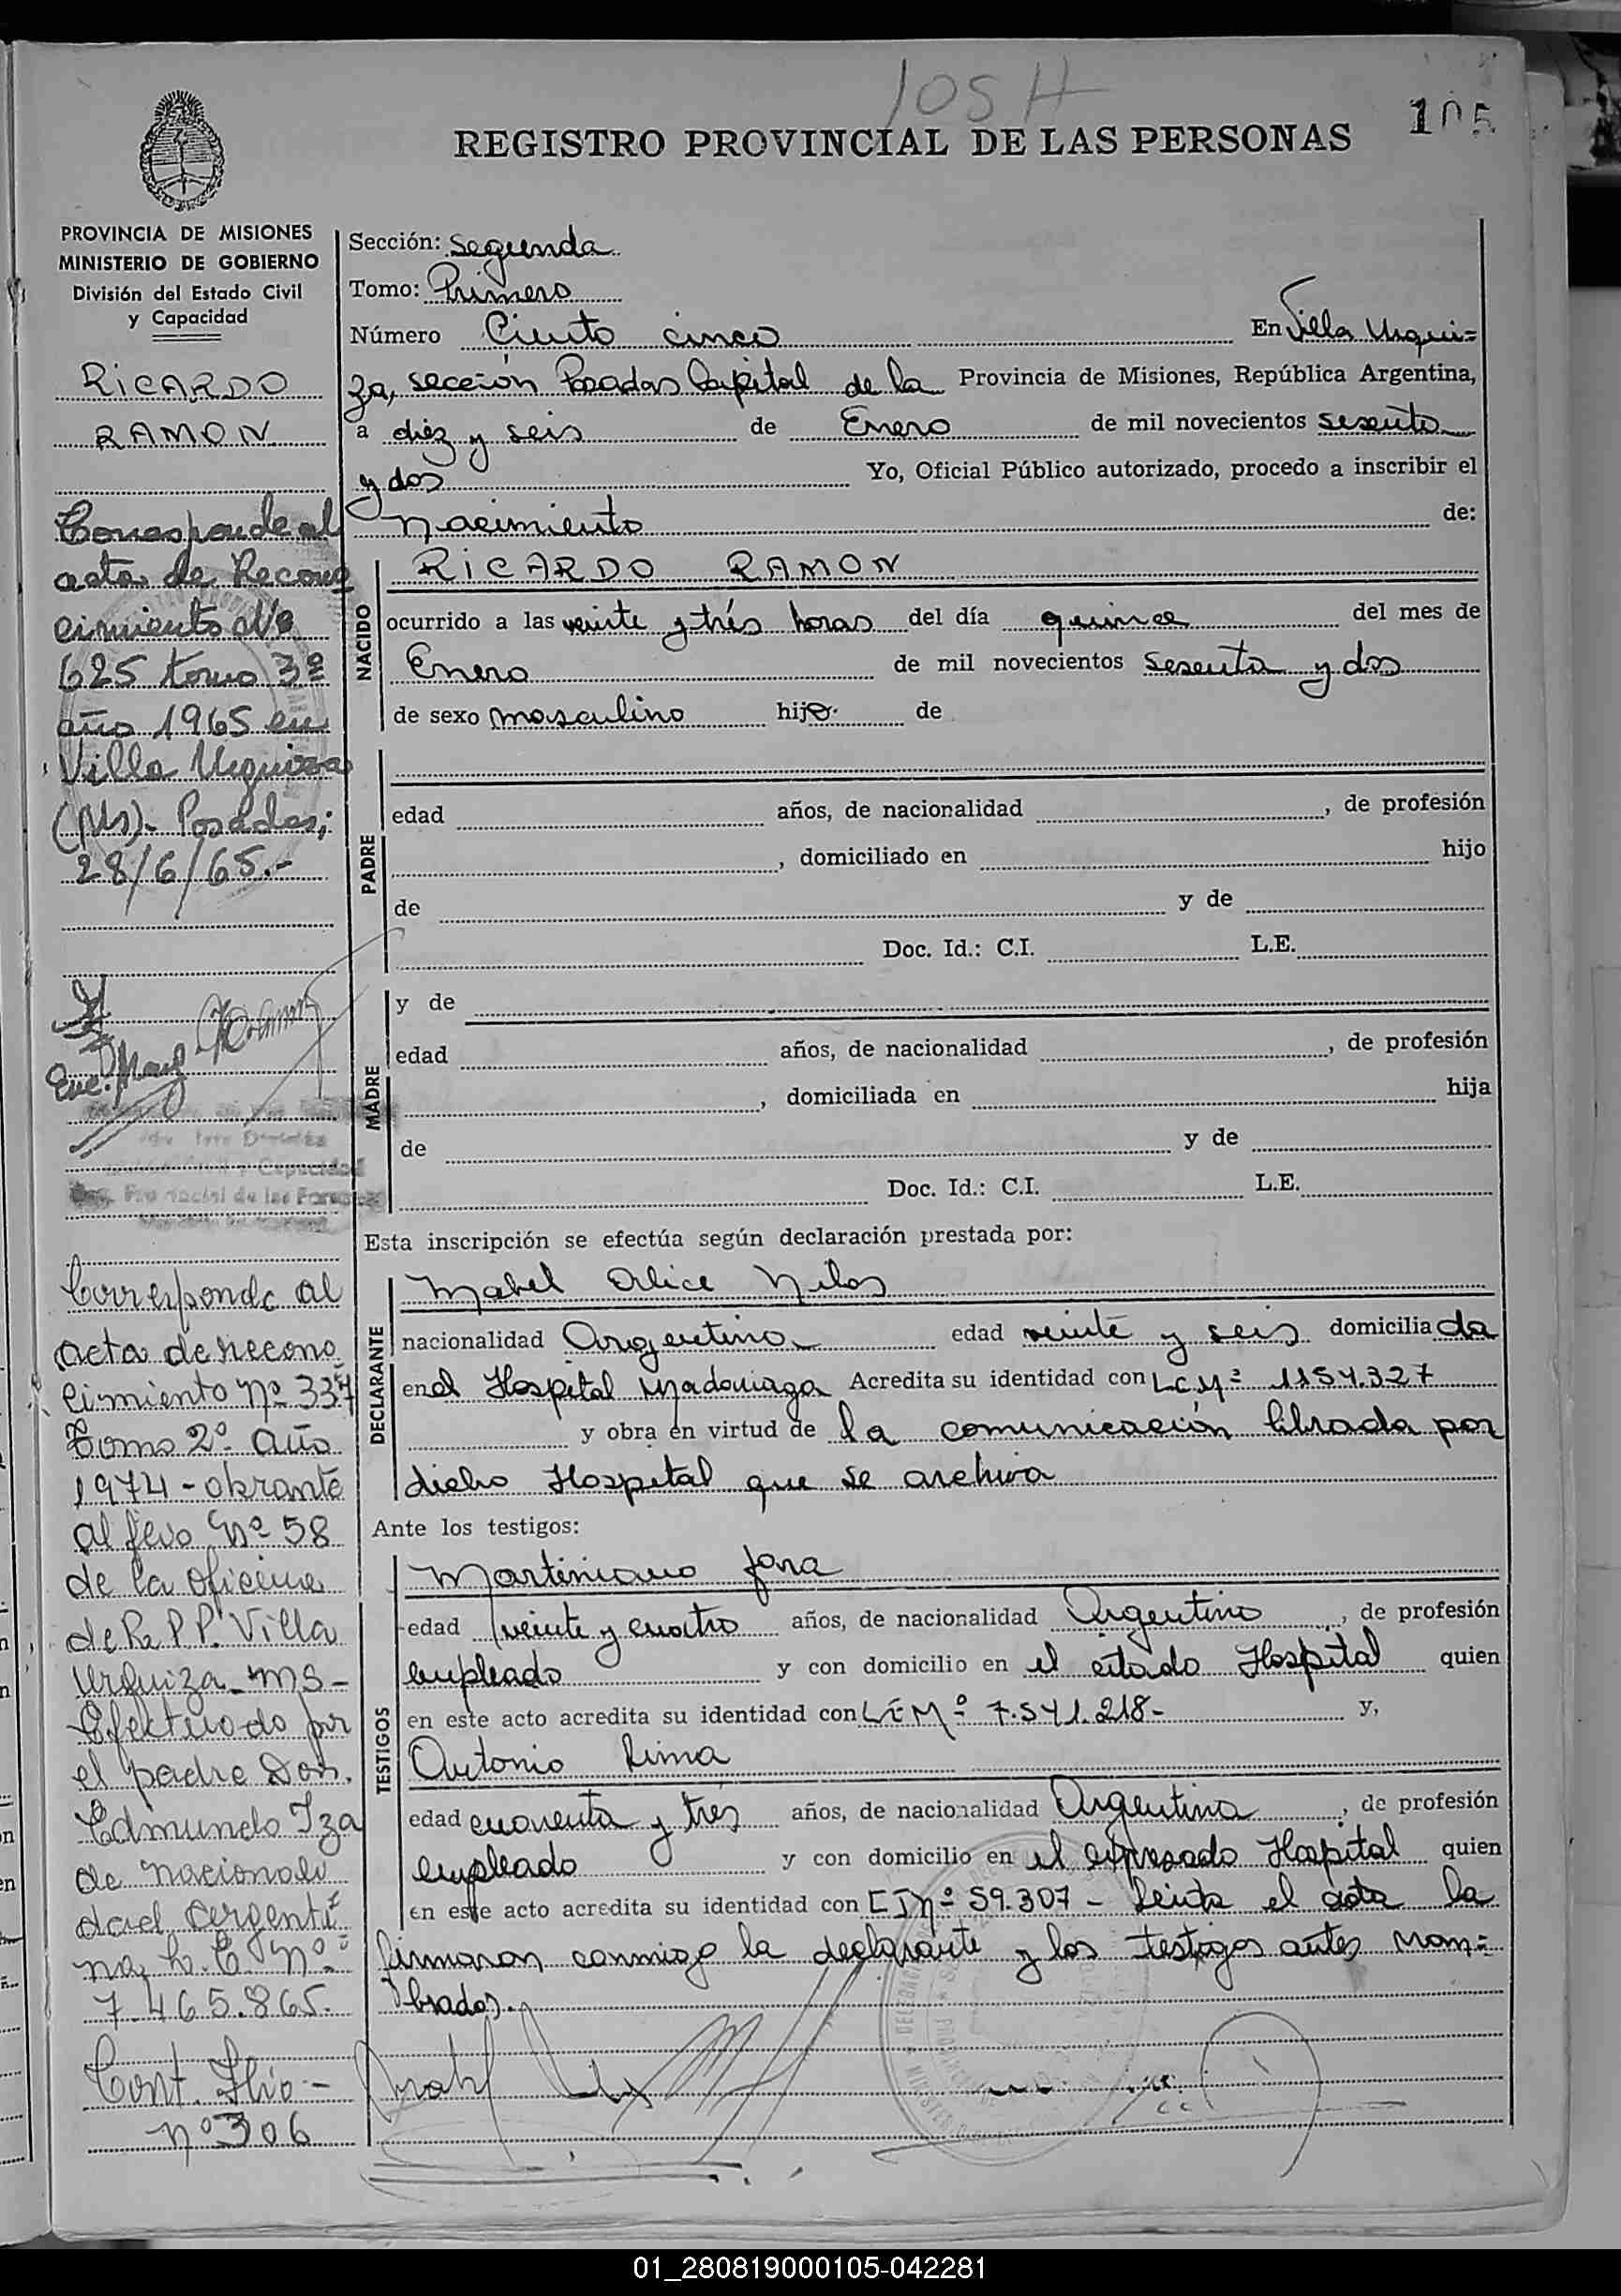 105 H
105
REGISTRO PROVINCIAL DE LAS PERSONAS
PROVINCIA DE MISIONES
MINISTERIO DE GOBIERNO
División del Estado Civil
y Capacidad
RICARDO
RAMON
Corresponde al
acta de Recono
cimiento Nº
625 tomo 3º
año 1965 en
Villa Urquiza
(Ms). Posadas;
28/6/65.-
Corresponde al
acta de recono
cimiento Nº 337
Tomo 2º Año
1974 - obrante
al fevo Nº 58
de la oficina
de R. P P. Villa
Urquiza - ms -
Efectuado por
el padre Don.
Edmundo Iza
de nacionali
dad argenti
na, L. E. Nº
7.465.865.
Cont. flio -
nº 306
Sección: Segunda
Tomo: Primero
Número Ciento cinco En Villa Urqui=
za, sección Posadas Capital de la Provincia de Misiones, República Argentina,
a diez y seis de Enero de mil novecientos sesenta
y dos Yo, Oficial Público autorizado, procedo a inscribir el
nacimiento de:
NACIDO
RICARDO RAMON
ocurrido a las veinte y trés horas del día quince del mes de
Enero de mil novecientos sesenta y dos
de sexo masculino hijo de
PADRE
edad años, de nacionalidad , de profesión
, domiciliado en hijo
de y de
Doc. Id.: C.I. L.E.
MADRE
y de
edad años, de nacionalidad , de profesión
, domiciliada en hija
de y de
Doc. Id.: C.I. L.E.
Esta inscripción se efectúa según declaración prestada por:
DECLARANTE
Mabel Alice
nacionalidad Argentina edad veinte y seis domiciliada
en el Hospital Madariaga Acredita su identidad con L.C.Nº 1154.327
y obra en virtud de la comunicación librada por
dicho Hospital que se archiva
Ante los testigos:
TESTIGOS
Martiniano Jara
edad veinte y cuatro años, de nacionalidad Argentino, de profesión
empleado y con domicilio en el citado Hospital quien
en este acto acredita su identidad con L.E Nº 7.541.218- y,
Antonio Lima
edad cuarenta y tres años, de nacionalidad Argentina, de profesión
empleado y con domicilio en el expresado Hospital quien
en este acto acredita su identidad con C I Nº 59.307 - Leida el acta la
firmaron conmigo la declarante y los testigos antes nom=
brados.
01_280819000105-042281